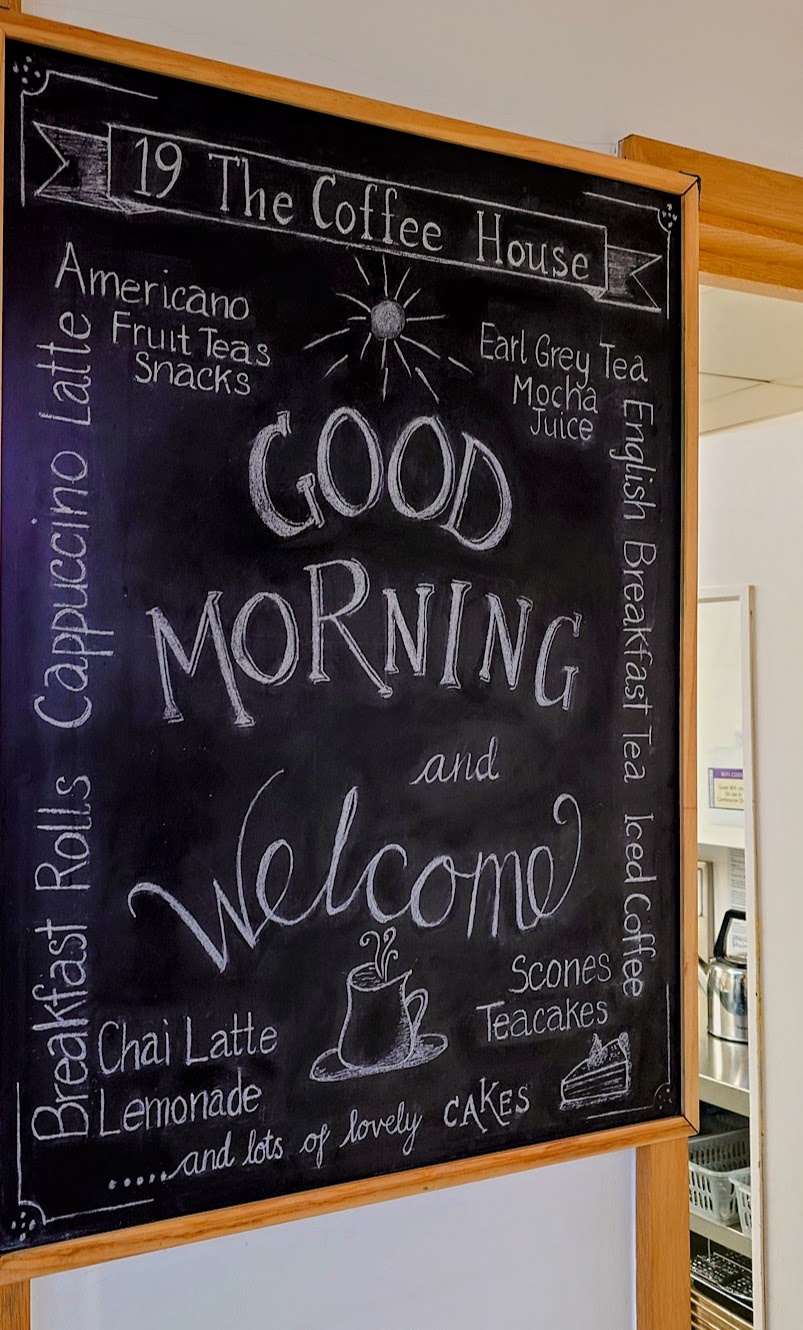 19 The Coffee House
Americano
Fruit Teas
Snacks
Earl Grey Tea
Mocha
Juice
Breakfast Rolls Cappuccino Latte
English Breakfast Tea Iced Coffee
GOOD
MORNING
and
Welcome
Chai Latte
Lemonade
Scones
Teacakes
.....and lots of lovely CAKES